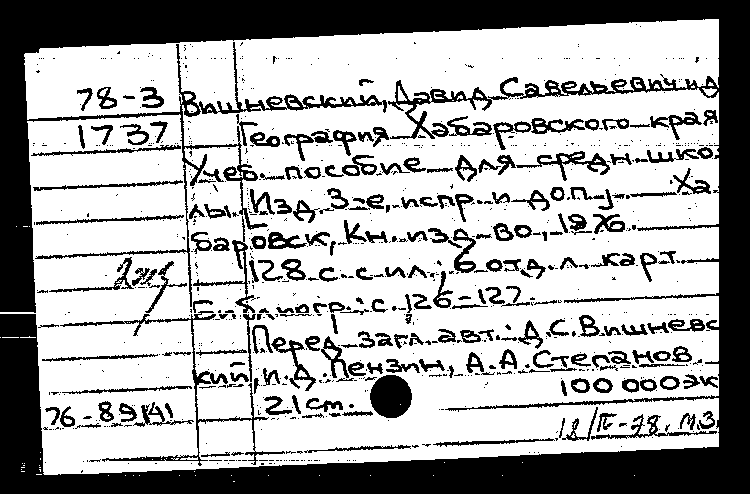 78-3 Вишневский, Давид Савельевич и д
1737 География Хабаровского края
Учеб. пособие для средн. шко-
лы. [Изд. 3-е, испр. и доп.]. Ха
баровск, Кн. изд-во, 1976.
128 с. с ил.; 6 отд. л. карт
2 экз
Библиогр.: с. 126-127.
Перед загл. авт.: Д.С. Вишневс
кий, И.Д. Пензин, А.А. Степанов.
76-89141 21 cm. 100 000 эк
18/IV-78. М.З.